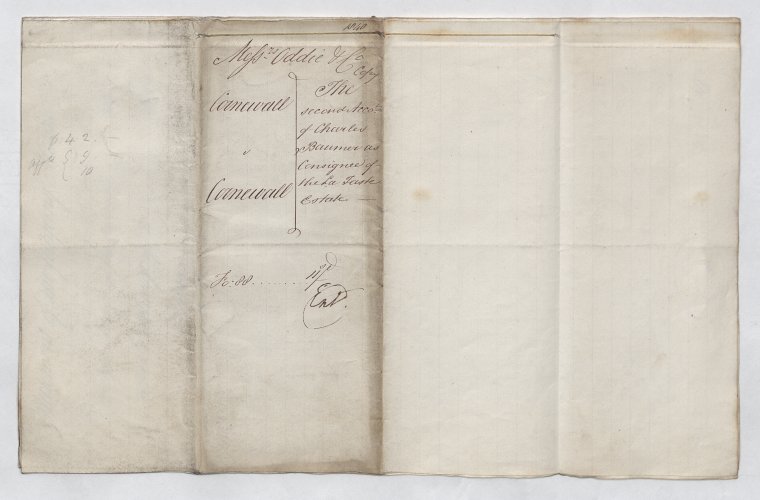 1840
Messrs Oddie & Co
Copy
Cornewall
"
Cornewall
The
second Accot
of Charles
Baumer as
Consignee of
the La Taste
Estate
Fo: 88
Ent.
42.
9
10